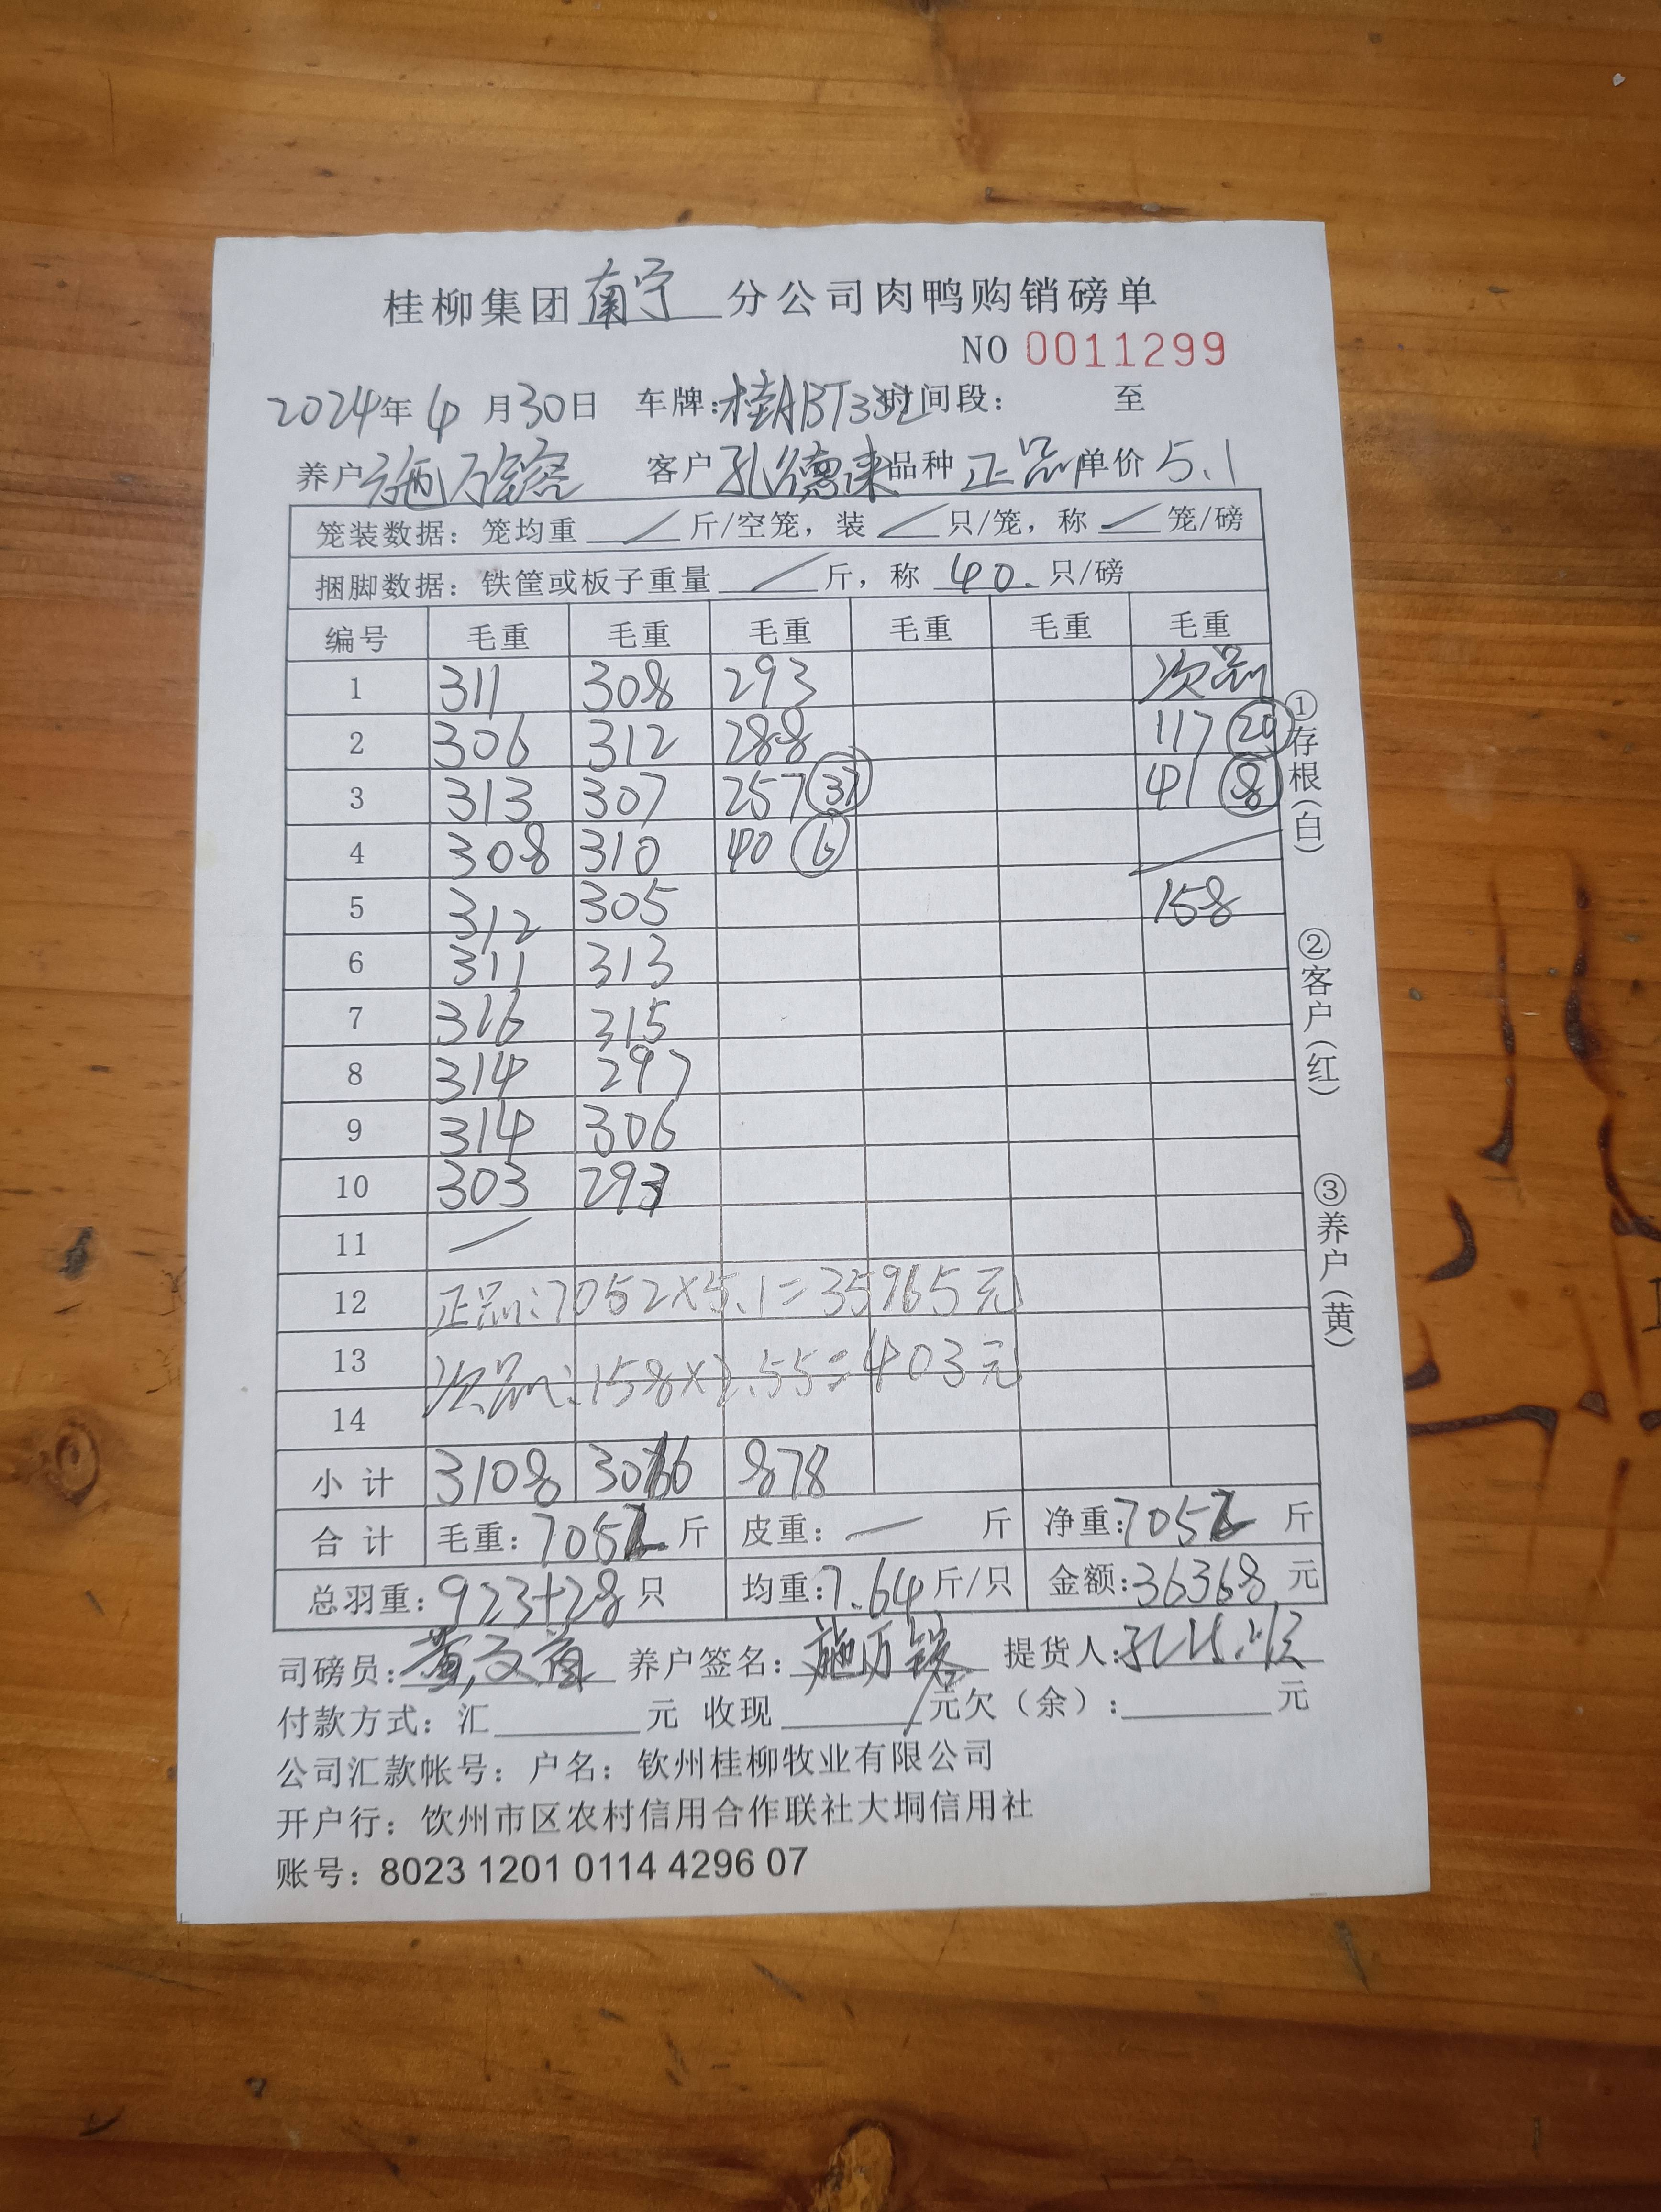 桂柳集团南宁分公司肉鸭购销磅单
NO 0011299
2024年4月30日 车牌:桂ABT332时间段: 至
养户施万 客户孔德 品种正品单价5.1
笼装数据:笼均重 / 斤/空笼,装 / 只/笼,称 / 笼/磅
捆脚数据:铁筐或板子重量 / 斤,称 40. 只/磅
编号 毛重 毛重 毛重 毛重 毛重 毛重
1 311 308 293 次品
2 306 312 288 117 20
3 313 307 257 37 41 8
4 308 310 40 6
5 312 305 158
6 311 313
7 316 315
8 314 297
9 314 306
10 303 293
11 /
12 正品:7052×5.1=35965元
13 次品:158×2.55=403元
14
小计 3108 3066 878
合计 毛重:7052斤 皮重:— 斤 净重:7052斤
总羽重:923+28只 均重:7.64斤/只 金额:36368元
司磅员:黄 养户签名:施万 提货人:孔
付款方式:汇 元 收现 / 元欠(余): 元
公司汇款帐号:户名:钦州桂柳牧业有限公司
开户行:钦州市区农村信用合作联社大垌信用社
账号:8023 1201 0114 4296 07
①存根(白)
②客户(红)
③养户(黄)